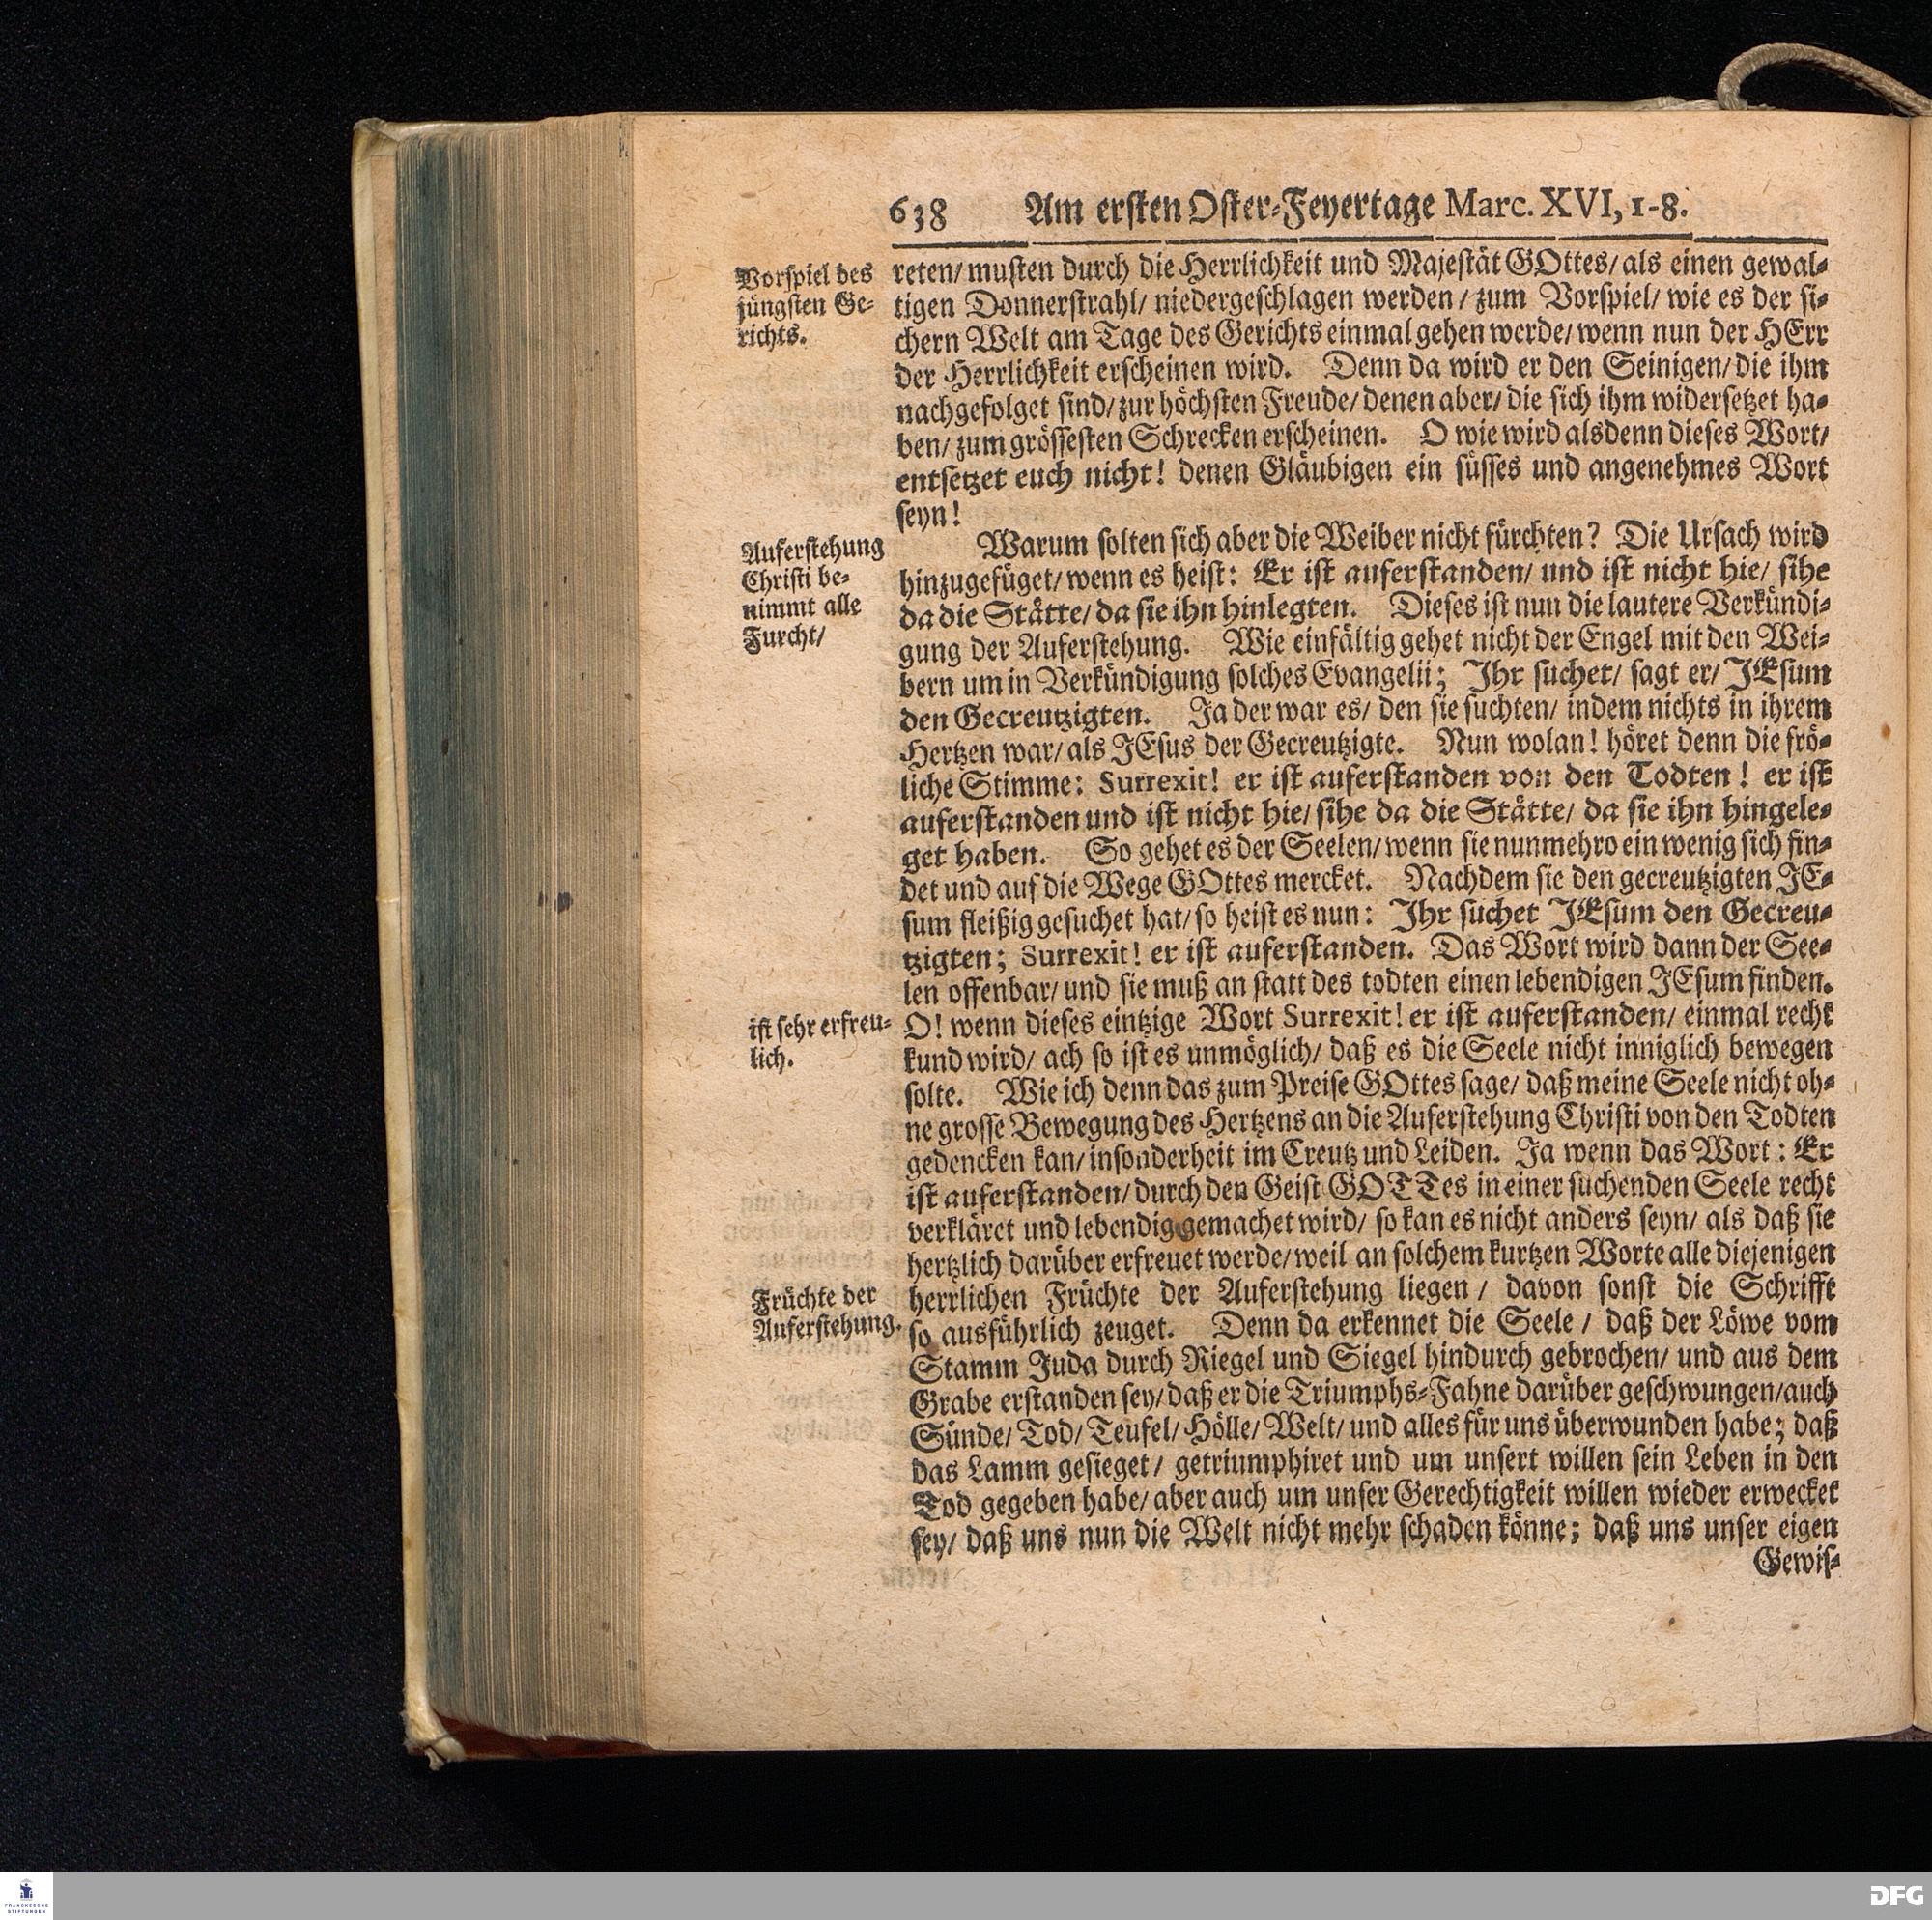 638 Am ersten Oster-Feyertage Marc. XVI, 1-8.
Vorspiel des
jüngsten Ge-
richts.
reten/ musten durch die Herrlichkeit und Majestät GOttes/ als einen gewal-
tigen Donnerstrahl/ niedergeschlagen werden/ zum Vorspiel/ wie es der si-
chern Welt am Tage des Gerichts einmal gehen werde/ wenn nun der HErr
der Herrlichkeit erscheinen wird. Denn da wird er den Seinigen/ die ihm
nachgefolget sind/ zur höchsten Freude/ denen aber/ die sich ihm widersetzet ha-
ben/ zum grössesten Schrecken erscheinen. O wie wird alsdenn dieses Wort/
entsetzet euch nicht! denen Gläubigen ein süsses und angenehmes Wort
seyn!
Auferstehung
Christi be-
nimmt alle
Furcht/
Warum solten sich aber die Weiber nicht fürchten? Die Ursach wird
hinzugefüget/ wenn es heist: Er ist auferstanden/ und ist nicht hie/ sihe
da die Stätte/ da sie ihn hinlegten. Dieses ist nun die lautere Verkündi-
gung der Auferstehung. Wie einfältig gehet nicht der Engel mit den Wei-
bern um in Verkündigung solches Evangelii; Ihr suchet/ sagt er/ JEsum
den Gecreutzigten. Ja der war es/ den sie suchten/ indem nichts in ihrem
Hertzen war/ als JEsus der Gecreutzigte. Nun wolan! höret denn die frö-
liche Stimme: Surrexit! er ist auferstanden von den Todten! er ist
auferstanden und ist nicht hie/ sihe da die Stätte/ da sie ihn hingele-
get haben. So gehet es der Seelen/ wenn sie nunmehro ein wenig sich fin-
det und auf die Wege GOttes mercket. Nachdem sie den gecreutzigten JE-
sum fleißig gesuchet hat/ so heist es nun: Ihr suchet JEsum den Gecreu-
tzigten; Surrexit! er ist auferstanden. Das Wort wird dann der See-
len offenbar/ und sie muß an statt des todten einen lebendigen JEsum finden.
ist sehr erfreu-
lich.
O! wenn dieses eintzige Wort Surrexit! er ist auferstanden/ einmal recht
kund wird/ ach so ist es unmöglich/ daß es die Seele nicht inniglich bewegen
solte. Wie ich denn das zum Preise GOttes sage/ daß meine Seele nicht oh-
ne grosse Bewegung des Hertzens an die Auferstehung Christi von den Todten
gedencken kan/ insonderheit im Creutz und Leiden. Ja wenn das Wort: Er
ist auferstanden/ durch den Geist GOTTes in einer suchenden Seele recht
verkläret und lebendig gemachet wird/ so kan es nicht anders seyn/ als daß sie
hertzlich darüber erfreuet werde/ weil an solchem kurtzen Worte alle diejenigen
Früchte der
Auferstehung.
herrlichen Früchte der Auferstehung liegen/ davon sonst die Schrifft
so ausführlich zeuget. Denn da erkennet die Seele/ daß der Löwe vom
Stamm Juda durch Riegel und Siegel hindurch gebrochen/ und aus dem
Grabe erstanden sey/ daß er die Triumphs-Fahne darüber geschwungen/ auch
Sünde/ Tod/ Teufel/ Hölle/ Welt/ und alles für uns überwunden habe; daß
das Lamm gesieget/ getriumphiret und um unsert willen sein Leben in den
Tod gegeben habe/ aber auch um unser Gerechtigkeit willen wieder erwecket
sey/ daß uns nun die Welt nicht mehr schaden könne; daß uns unser eigen
Gewis-
FRANCKESCHE
STIFTUNGEN
DFG